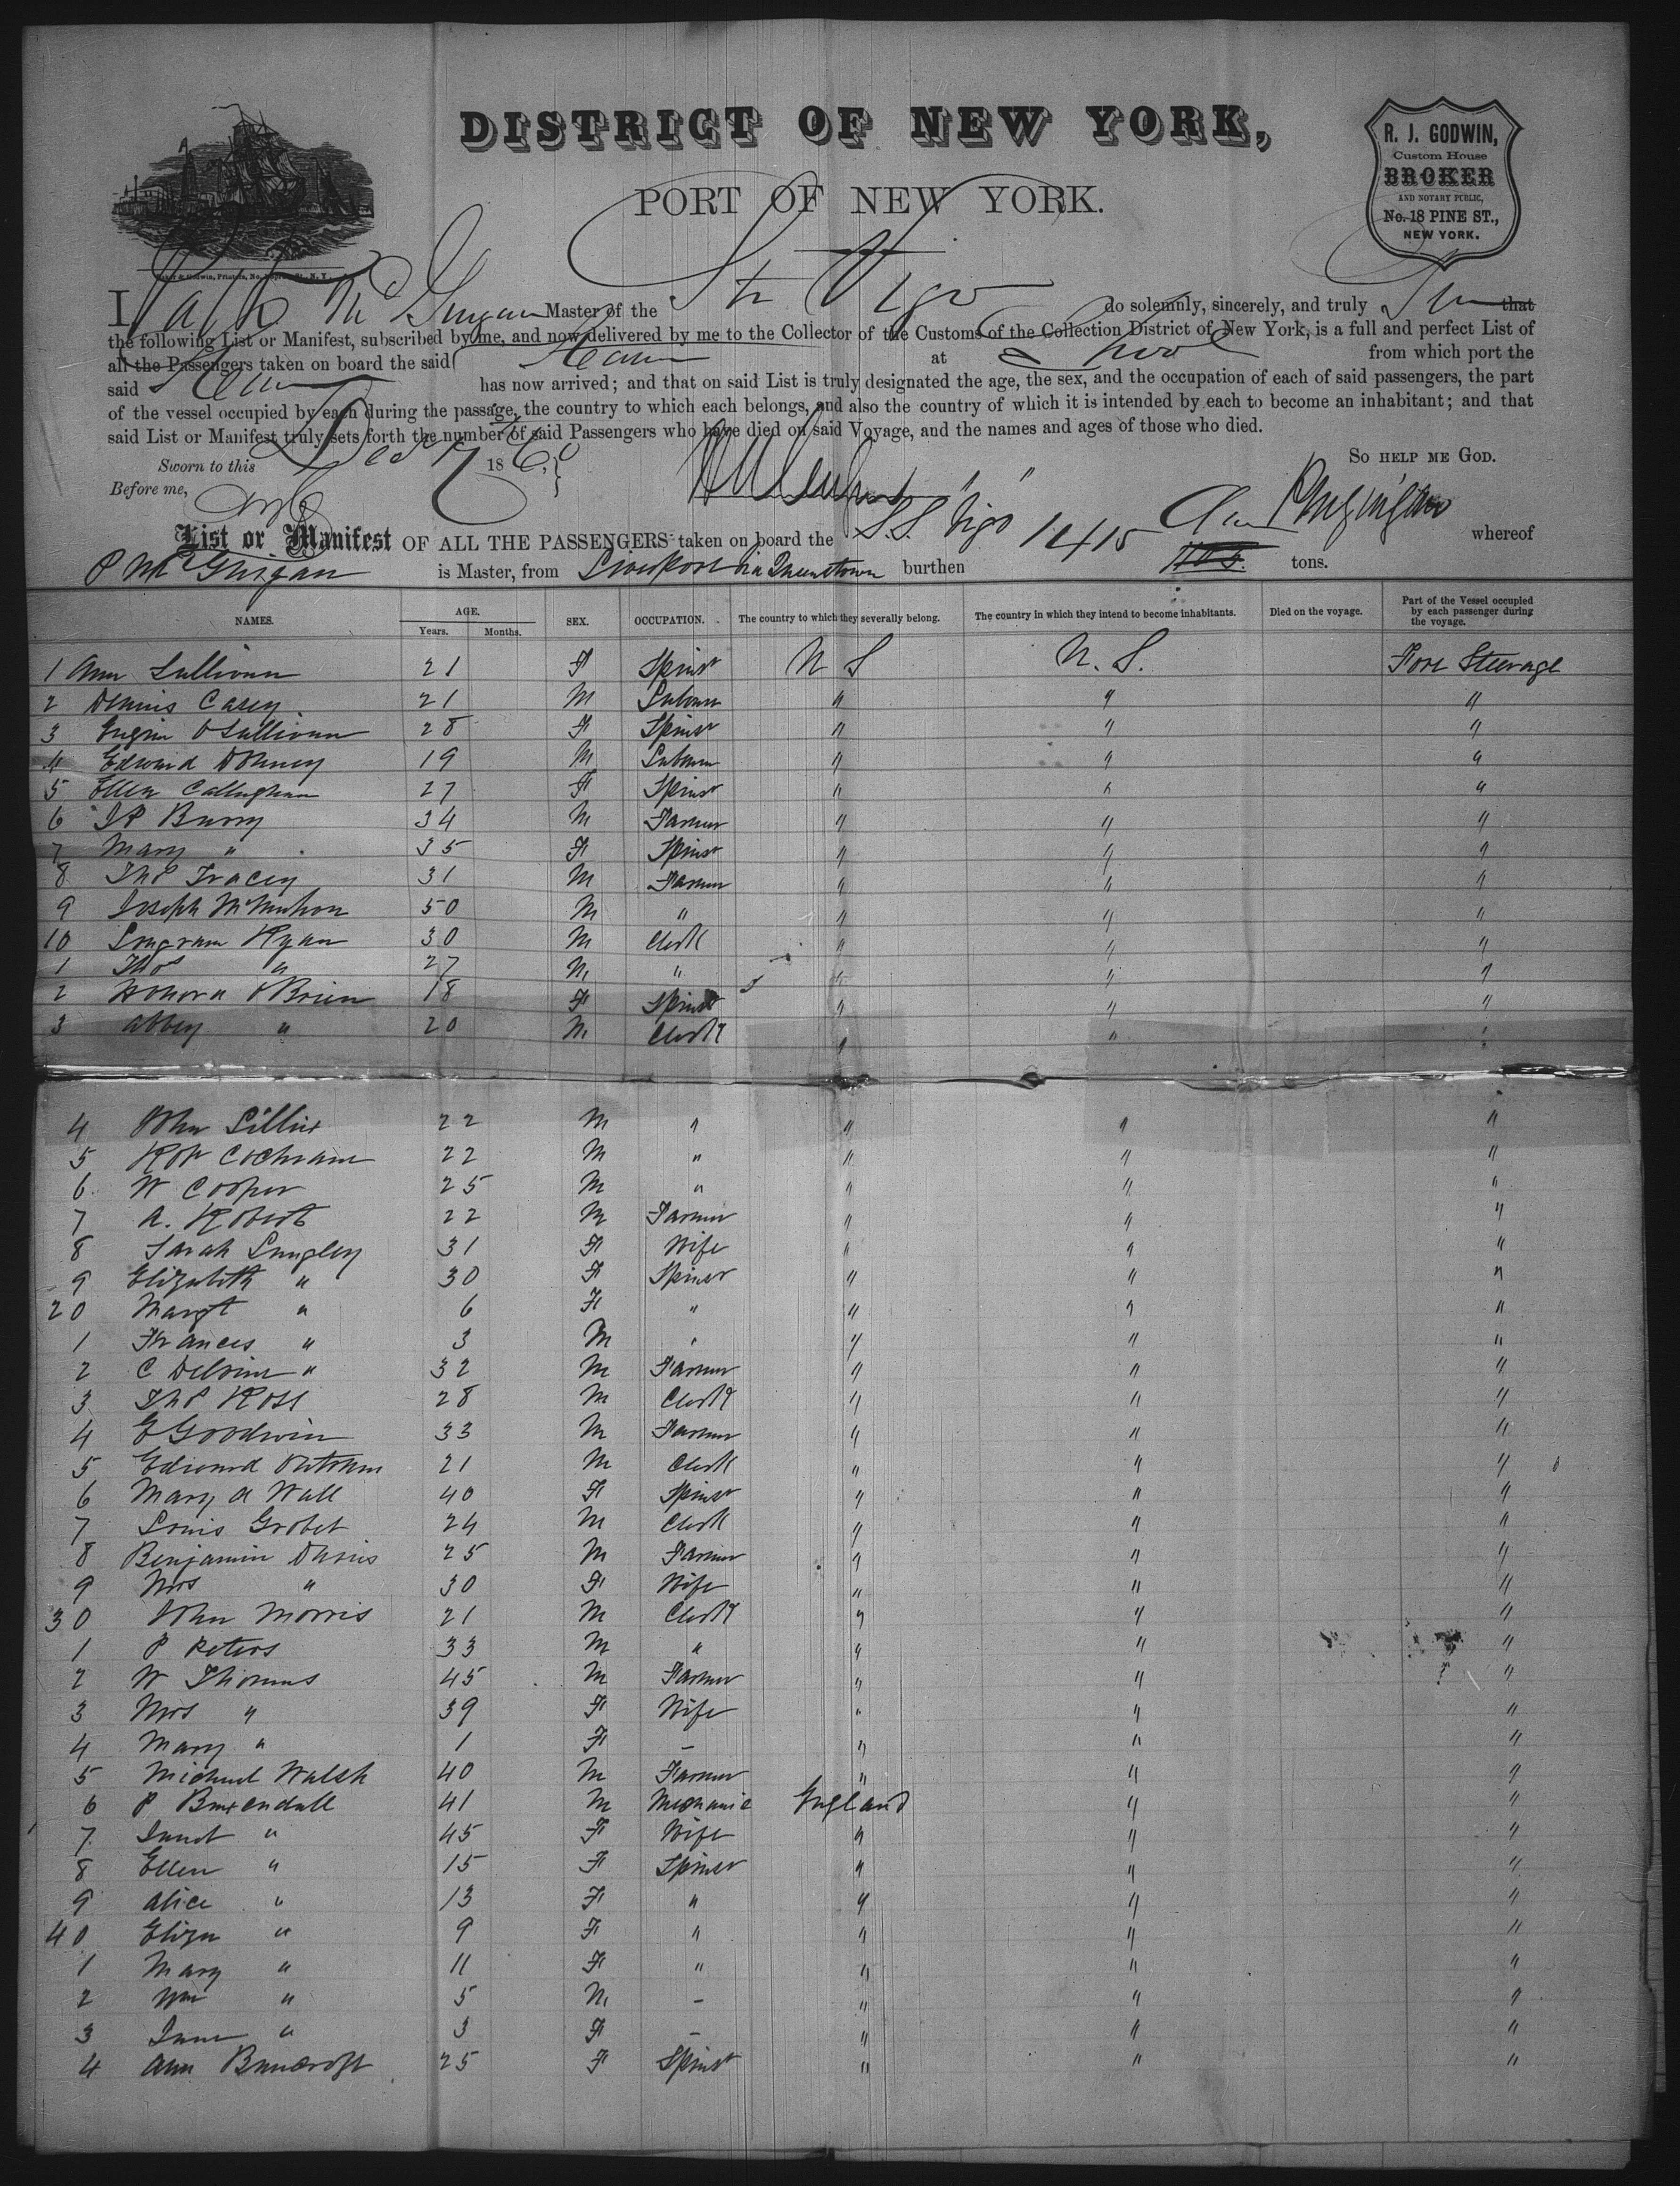 DISTRICT OF NEW YORK,
PORT OF NEW YORK.
R. J. GODWIN,
Custom House
BROKER
AND NOTARY PUBLIC,
No. 18 PINE ST.,
NEW YORK.
I Mc Guigan Master of the Str Vigo do solemnly, sincerely, and truly that
the following List or Manifest, subscribed by me, and now delivered by me to the Collector of the Customs of the Collection District of New York, is a full and perfect List of
all the Passengers taken on board the said Steam at L'pool from which port the
said Steam has now arrived; and that on said List is truly designated the age, the sex, and the occupation of each of said passengers, the part
of the vessel occupied by each during the passage, the country to which each belongs, and also the country of which it is intended by each to become an inhabitant; and that
said List or Manifest truly sets forth the number of said Passengers who have died on said Voyage, and the names and ages of those who died.
Sworn to this 186 SO HELP ME GOD.
Before me,
List or Manifest OF ALL THE PASSENGERS taken on board the S.S. "Vigo" 1415 whereof
P McGuigan is Master, from Liverpool via Queenstown burthen tons.
NAMES. AGE. Years. Months. SEX. OCCUPATION. The country to which they severally belong. The country in which they intend to become inhabitants. Died on the voyage. Part of the Vessel occupied by each passenger during the voyage.
1 Ann Sullivan 21 F Spinst U S U. S. Fore Steerage
2 Dennis Casey 21 M Labour " " "
3 O'Sullivan 28 F Spinst " " "
4 Edward 19 M Labour " " "
5 Ellen Callaghan 27 F Spinst " " "
6 Barry 34 M Farmer " " "
7 Mary " 35 F Spinst " " "
8 Thos Tracey 31 M Farmer " " "
9 Joseph McMahon 50 M " " " "
10 Ryan 30 M Clerk " " "
1 Thos " 27 M " " " "
2 Honora O'Brien 18 F Spinst " " "
3 Abbey " 20 M Clerk " " "
4 John 22 M " " " "
5 Robt Cochrane 22 M " " " "
6 W Cooper 25 M " " " "
7 A. Robert 22 M Farmer " " "
8 Sarah Langley 31 F Wife " " "
9 Elizabeth " 30 F Spinst " " "
20 Margt " 6 F " " " "
1 Frances " 3 M " " " "
2 C " 32 M Farmer " " "
3 Thos Ross 28 M Clerk " " "
4 E Goodwin 33 M Farmer " " "
5 Edward 21 M Clerk " " "
6 Mary A Wall 40 F Spinst " " "
7 Louis Grobet 24 M Clerk " " "
8 Benjamin Davis 25 M Farmer " " "
9 Mrs " 30 F Wife " " "
30 John Morris 21 M Clerk " " "
1 P Peters 33 M " " " "
2 W Thomas 45 M Farmer " " "
3 Mrs " 39 F Wife " " "
4 Mary " 1 F – " " "
5 Michael Walsh 40 M Farmer " " "
6 P Baxendall 41 M Mechanic England " "
7 Janet " 45 F Wife " " "
8 Ellen " 15 F Spinst " " "
9 Alice " 13 F " " " "
40 Eliza " 9 F " " " "
1 Mary " 11 F " " " "
2 Wm " 5 M – " " "
3 Jane " 3 F – " " "
4 Ann Bancroft 25 F Spinst " " "